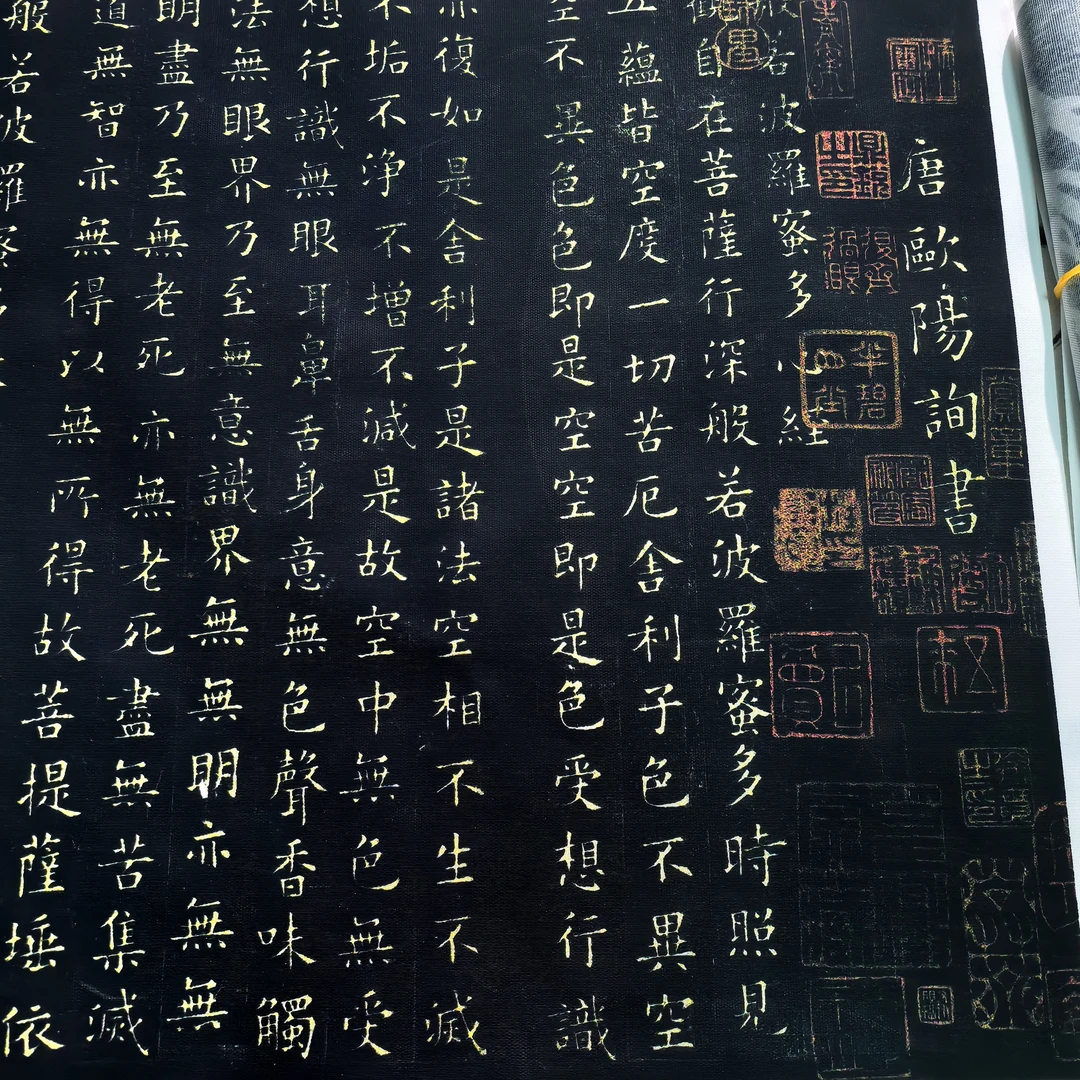 唐歐陽詢書
般若波羅蜜多心經
觀自在菩薩行深般若波羅蜜多時照見
五蘊皆空度一切苦厄舍利子色不異空
空不異色色即是空空即是色受想行識
亦復如是舍利子是諸法空相不生不滅
不垢不淨不增不減是故空中無色無受
想行識無眼耳鼻舌身意無色聲香味觸
法無眼界乃至無意識界無無明亦無無
明盡乃至無老死亦無老死盡無苦集滅
道無智亦無得以無所得故菩提薩埵依
般若波羅蜜多